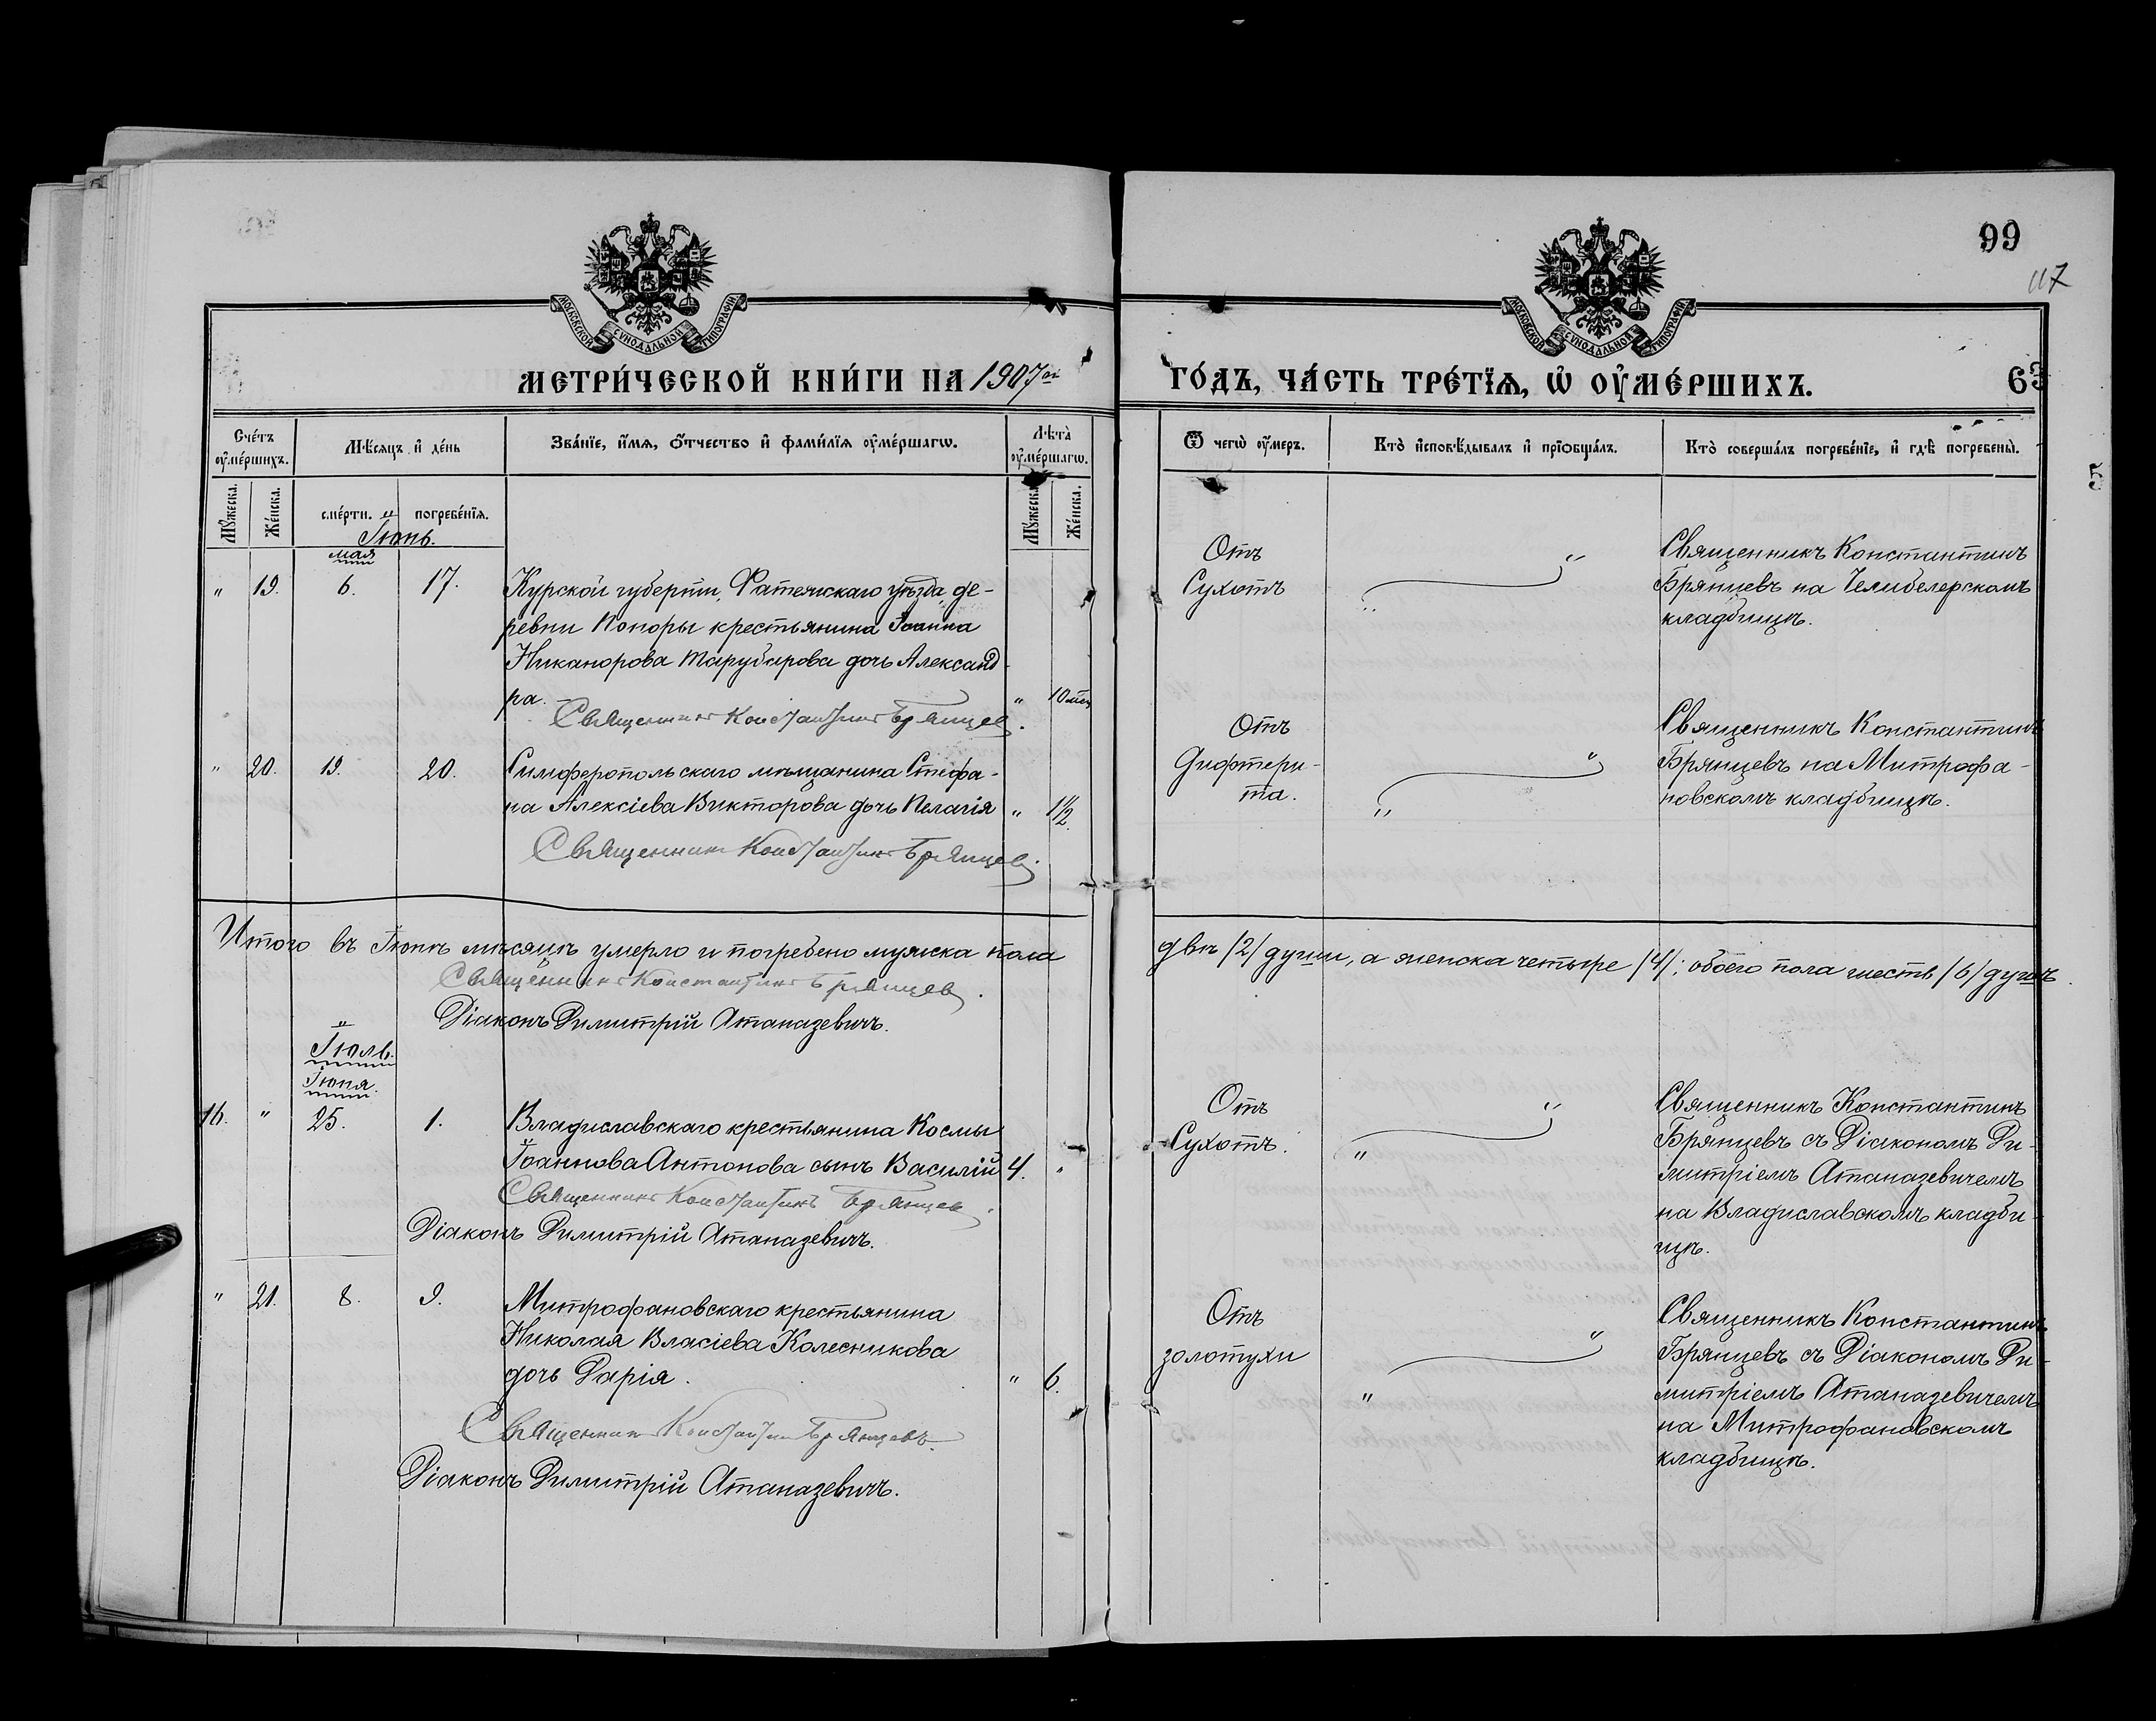 99
117
МОСКОВСКОЙ СѴНОДАЛЬНОЙ ТИПОГРАФІИ
МОСКОВСКОЙ СѴНОДАЛЬНОЙ ТИПОГРАФІИ
МЕТРИ́ЧЕСКОЙ КНИ́ГИ НА 1907ой
ГО́ДЪ, ЧА́СТЬ ТРЕ́ТЇѦ, Ѡ҆ ОУ҆МЕ́РШИХЪ.
63
5
Сче́тъ оу҆ме́ршихъ.
Мѣ́сяцъ и҆ де́нь
Зва́нїе, и҆́мѧ, ѻ҆́тчество и҆ фами́лїѧ оу҆ме́ршагѡ.
Лѣта̀ оу҆ме́ршагѡ.
Ѿ чегѡ̀ оу҆́меръ.
Кто̀ и҆сповѣ́дывалъ и҆ прїѡбща́лъ.
Кто̀ соверша́лъ погребе́нїе, и҆ гдѣ̀ погребены̀.
Мꙋ́жеска.
Же́нска.
сме́рти. и погребе́нїѧ.
Мꙋ́жеска.
Же́нска.
Іюнь.
мая
" 19. 6. 17.
Курской губерніи, Фатежскаго уѣзда, де-
ревни Поноры крестьянина Іоанна
Никанорова Тарубарова дочь Александ-
ра. " 10 мѣс
Священникъ Константинъ Брянцев.
Отъ
Сухотъ
"
Священникъ Константинъ
Брянцевъ на Челибелерскомъ
кладбищѣ.
" 20. 19. 20.
Симферопольскаго мѣщанина Стефа-
на Алексіева Викторова дочь Пелагія " 1½.
Священникъ Константинъ Брянцев.
Отъ
Дифтери-
та.
" "
Священникъ Константинъ
Брянцевъ на Митрофа-
новскомъ кладбищѣ.
Итого въ Іюнѣ мѣсяцѣ умерло и погребено мужска пола
двѣ /2/ души, а женска четыре /4/; обоего пола шесть /6/ душъ.
Священникъ Константинъ Брянцев.
Діаконъ Димитрій Атаназевичъ.
Іюль.
Іюня.
16. " 25. 1.
Владиславскаго крестьянина Космы
Іоаннова Антонова сынъ Василій 4. "
Священникъ Константинъ Брянцев.
Діаконъ Димитрій Атаназевичъ.
Отъ
Сухотъ.
" "
Священникъ Константинъ
Брянцевъ съ Діакономъ Ди-
митріемъ Атаназевичемъ
на Владиславскомъ кладби-
щѣ.
" 21. 8. 9.
Митрофановскаго крестьянина
Николая Власіева Колесникова
дочь Дарія. " 6.
Священникъ Константинъ Брянцевъ.
Діаконъ Димитрій Атаназевичъ.
Отъ
золотухи
" "
Священникъ Константинъ
Брянцевъ съ Діакономъ Ди-
митріемъ Атаназевичемъ
на Митрофановскомъ
кладбищѣ.